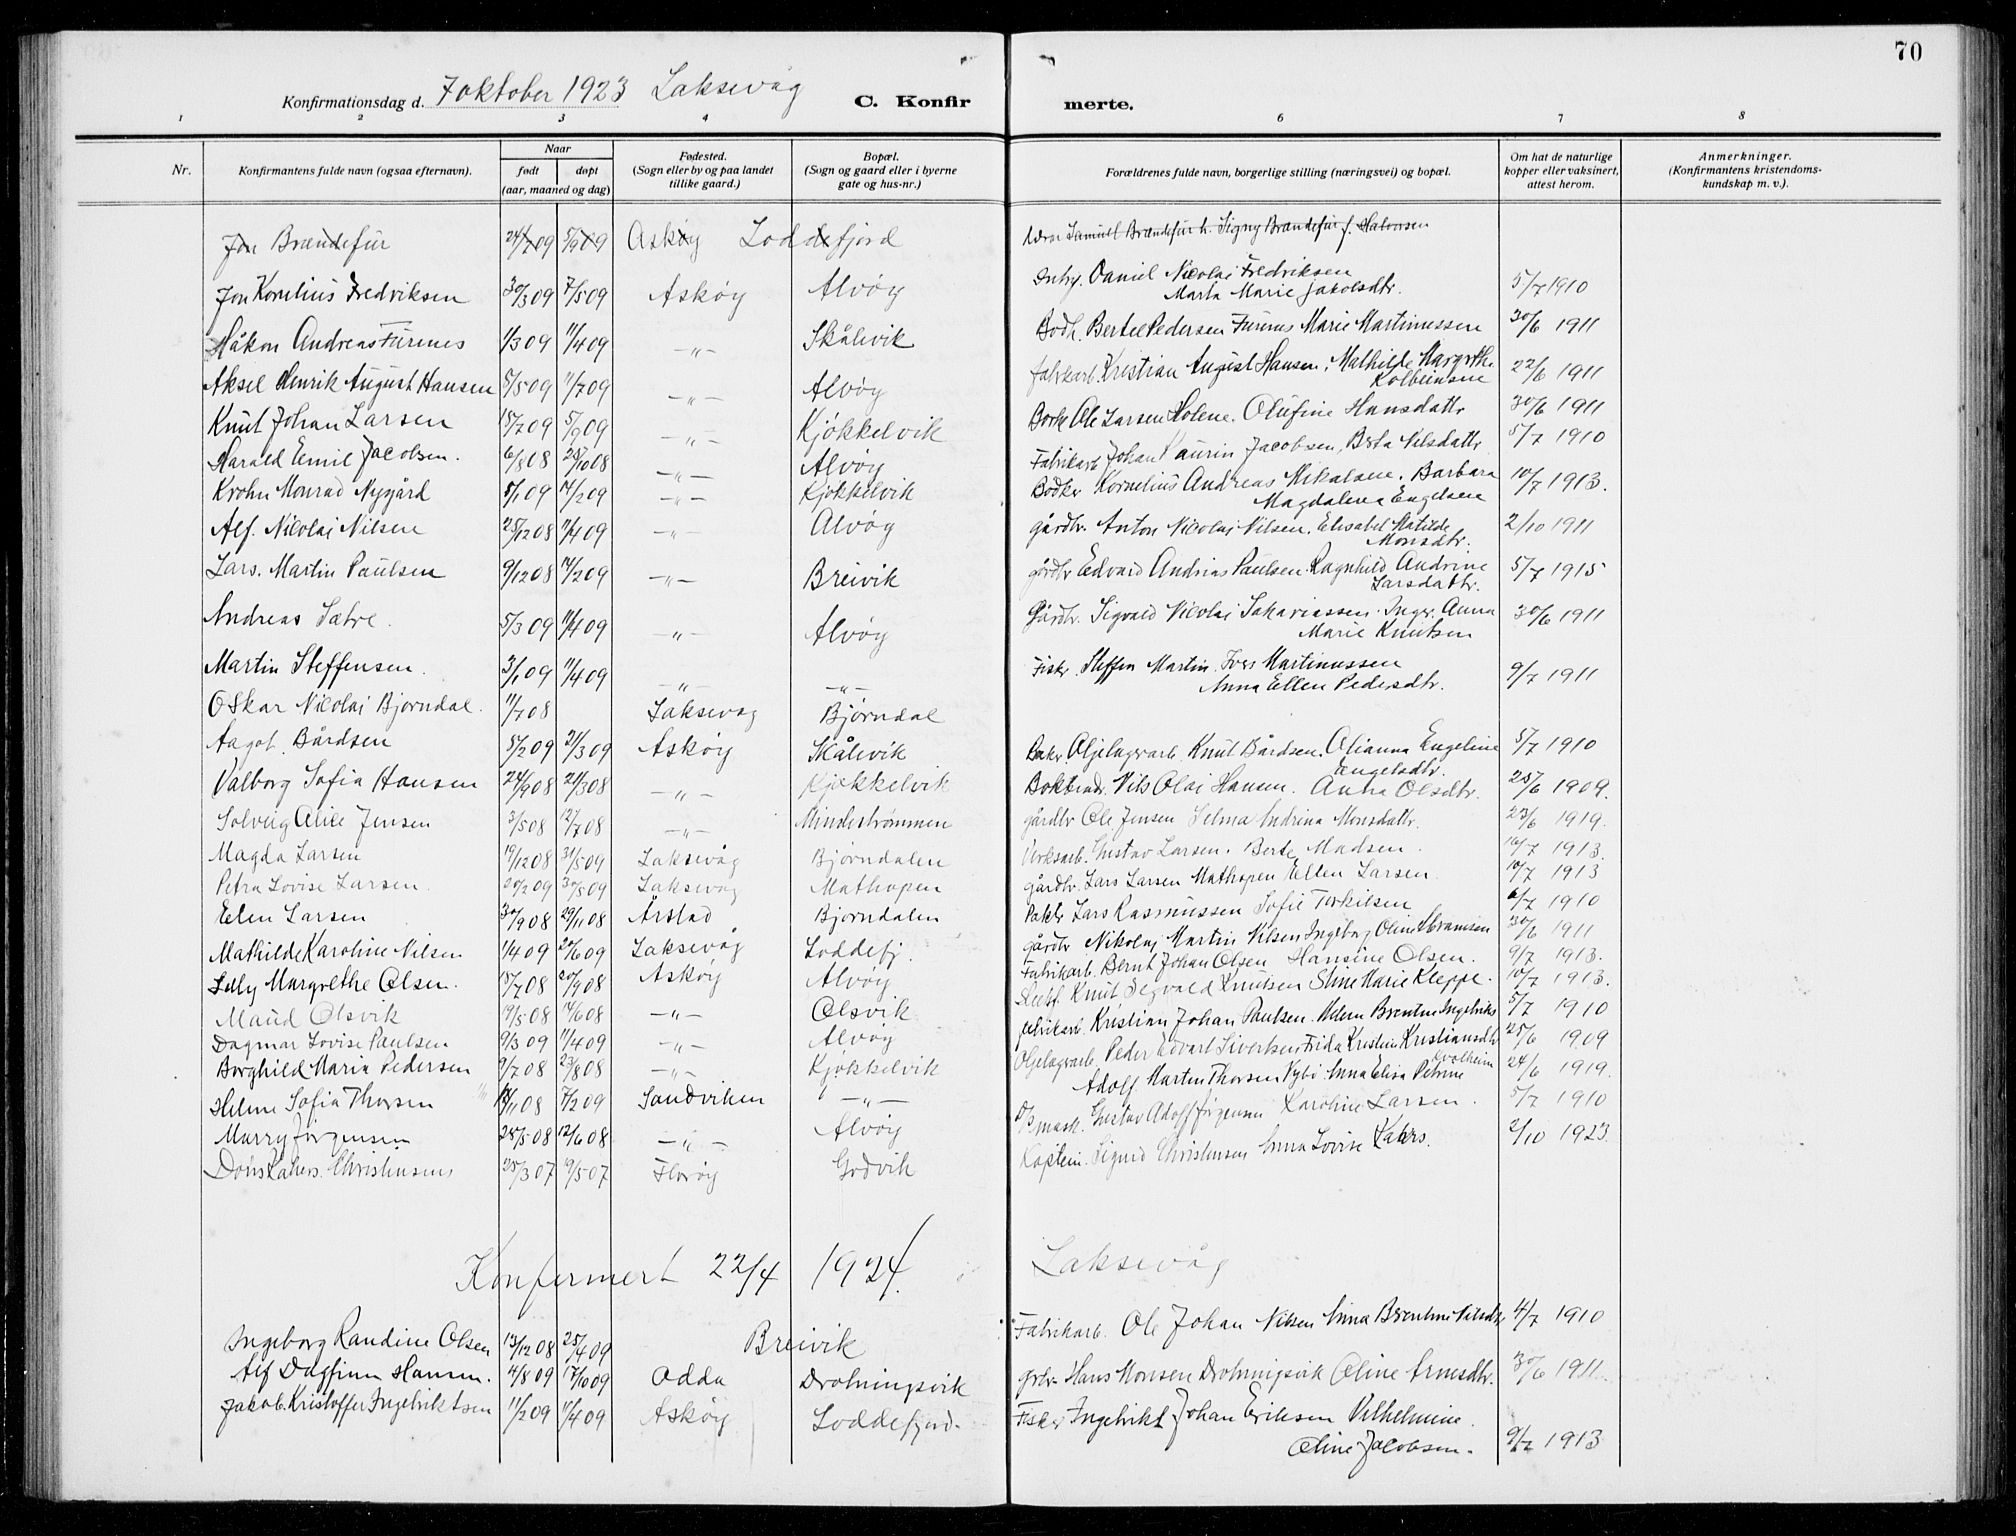 70
Konfirmationsdag d. 7 oktober 1923 Laksevåg C. Konfirmerte.
1 2 3 4 5 6 7 8
Nr. Konfirmantens fulde navn (ogsaa efternavn). Naar født døpt (aar, maaned og dag) Fødested. (Sogn eller by og paa landet tillike gaard.) Bopæl. (Sogn og gaard eller i byerne gate og hus-nr.) Forældrenes fulde navn, borgerlige stilling (næringsvei) og bopæl. Om hat de naturlige kopper eller vaksinert, attest herom. Anmerkninger. (Konfirmantens kristendomskundskap m. v.).
Jon Brændefur 24/7 09 5/9 09 Askøy Loddefjord Lærer Samuel Brændefur h. Signy Brændefur f. Halvorsen
Jon Kornelius Fredriksen 30/3 09 7/5 09 Askøy Alvøy Daniel Nicolai Fredriksen 5/7 1910
Marta Marie Jakobsdtr.
Håkon Andreas Furenes 1/3 09 11/4 09 -"- Skålevik Bertel Pedersen Furenes Marie Martinussen 30/6 1911
Aksel Henrik August Hansen 5/5 09 11/7 09 -"- Alvøy Fabrkarb. Kristian August Hansen, Mathilde Margrthe Kolbeinsene 22/6 1911
Knut Johan Larsen 15/7 09 5/9 09 -"- Kjøkkelvik Ole Larsen Holene. Olufine Hansdattr 30/6 1911
Harald Emil Jacobsen. 6/8 08 25/10 08 -"- Alvøy Fabrikarb Johan Laurin Jacobsen, Berta Nilsdattr 5/7 1910
Krohn Monrad Nygård 5/1 09 14/2 09 -"- Kjøkkelvik Bødker Kornelius Andreas Mikalsene. Barbara Magdalena Engelsene 10/7 1913.
Alf. Nicolai Nilsen 25/12 08 11/4 09 -"- Alvøy gårdbr. Anton Nicolai Nilsen. Elisabet Matilde Monsdtr. 2/10 1911
Lars. Martin Paulsen 9/12 08 14/2 09 -"- Breivik gårdbr Edvard Andreas Paulsen. Ragnhild Andrine Larsdattr. 5/7 1915
Andreas Sætre. 5/3 09 11/4 09 -"- Alvøy Gårdbr. Sigvald Nicolai Sakariassen. Inger. Anna Marie Knutsen 30/6 1911
Martin Steffensen. 3/1 09 11/4 09 -"- -"- Fisker. Steffen Martin. Iver Martinussen 9/7 1911
Anna Ellen Pedersdtr.
Oskar Nicolai Bjørndal. 11/7 08 Laksevåg Bjørndal
Aagot. Bårdsen 5/2 09 21/3 09 Askøy Skålevik Oljelagerarb. Knut Bårdsen. Olianna Engeline Engelsdtr. 5/7 1910
Valborg Sofia Hansen 24/9 08 21/3 08 -"- Kjøkkelvik Nils Olai Hansen. Anna Olsdtr. 25/6 1909.
Solveig Alice Jensen 3/5 08 12/7 08 -"- Mindestrømmen gårdbr Ole Jensen Selma Indrina Monsdattr. 23/6 1919.
Magda Larsen 19/12 08 31/5 09 Laksevåg Bjørndalen Verksarb. Gustav Larsen. Berte Madsen. 16/7 1913.
Petra Lovise Larsen. 20/2 09 30/5 09 Laksevåg Mathopen gårdbr. Lars Larsen Mathopen Ellen Larsen. 10/7 1913
Ellen Larsen 30/9 08 29/11 08 Årstad Bjørndalen Lars Rasmussen Sofie Torkilsen 6/7 1910
Mathilde Karoline Nilsen 1/4 09 20/6 09 Laksevåg Loddefj. gårdbr Nikolai Martin Nilsen Ingeborg Oline Abramsen 30/6 1911
Lilly Margrethe Olsen. 15/7 08 20/9 08 Askøy Alvøy Fabrikarb. Bernt Johan Olsen Hansine Olsen. 9/7 1913.
Maud Olsvik 19/5 08 14/6 08 -"- Olsvik Knut Segvald Knutsen Stine Marie Kleppe. 10/7 1913.
Dagmar Lovise Paulsen 9/3 09 11/4 09 -"- Alvøy Fabrikarb. Kristian Johan Paulsen. Helene Brentine Ingebrikts 5/7 1910
Borghild Maria Pedersen 9/7 08 23/8 08 -"- Kjøkkelvik Oljelagerarb. Peder Edvart Sivertsen, Frida Kristine Kristiansdtr 25/6 1909
Helene Sofia Thorsen 18/11 08 7/2 09 Sandviken -"- Adolf Marten Thorsen Nybø Anna Elisa Petrine 24/6 1919.
Marry Jørgensen 25/5 08 12/6 08 -"- Alvøy mask. Gustav Adolf Jørgensen Karoline Larsen. 5/7 1910
Doris Kahrs. Christensens 25/3 07 19/5 07 Florøy Godvik Kaptein. Sigurd Christensen Anna Lovise Kahrs. 2/10 1923.
Konfermert 22/4 1924. Laksevåg
Ingeborg Randine Olsen 13/12 08 25/4 09 Breivik Fabrikarb. Ole Johan Nilsen Anna Brentine Nilsdtr 4/7 1910
Alf Dagfinn Hansen. 4/8 09 17/10 09 Odda Drotningsvik grbr. Hans Monsen Drotningsvik Oline Arnesdtr. 30/6 1911.
Jakob Kristoffer Ingebriktsen 11/2 09 11/4 09 Askøy Loddefjord. Fisker Ingebrikt Johan Eriksen Vilhelmine
Oline Jacobsen. 9/7 1913